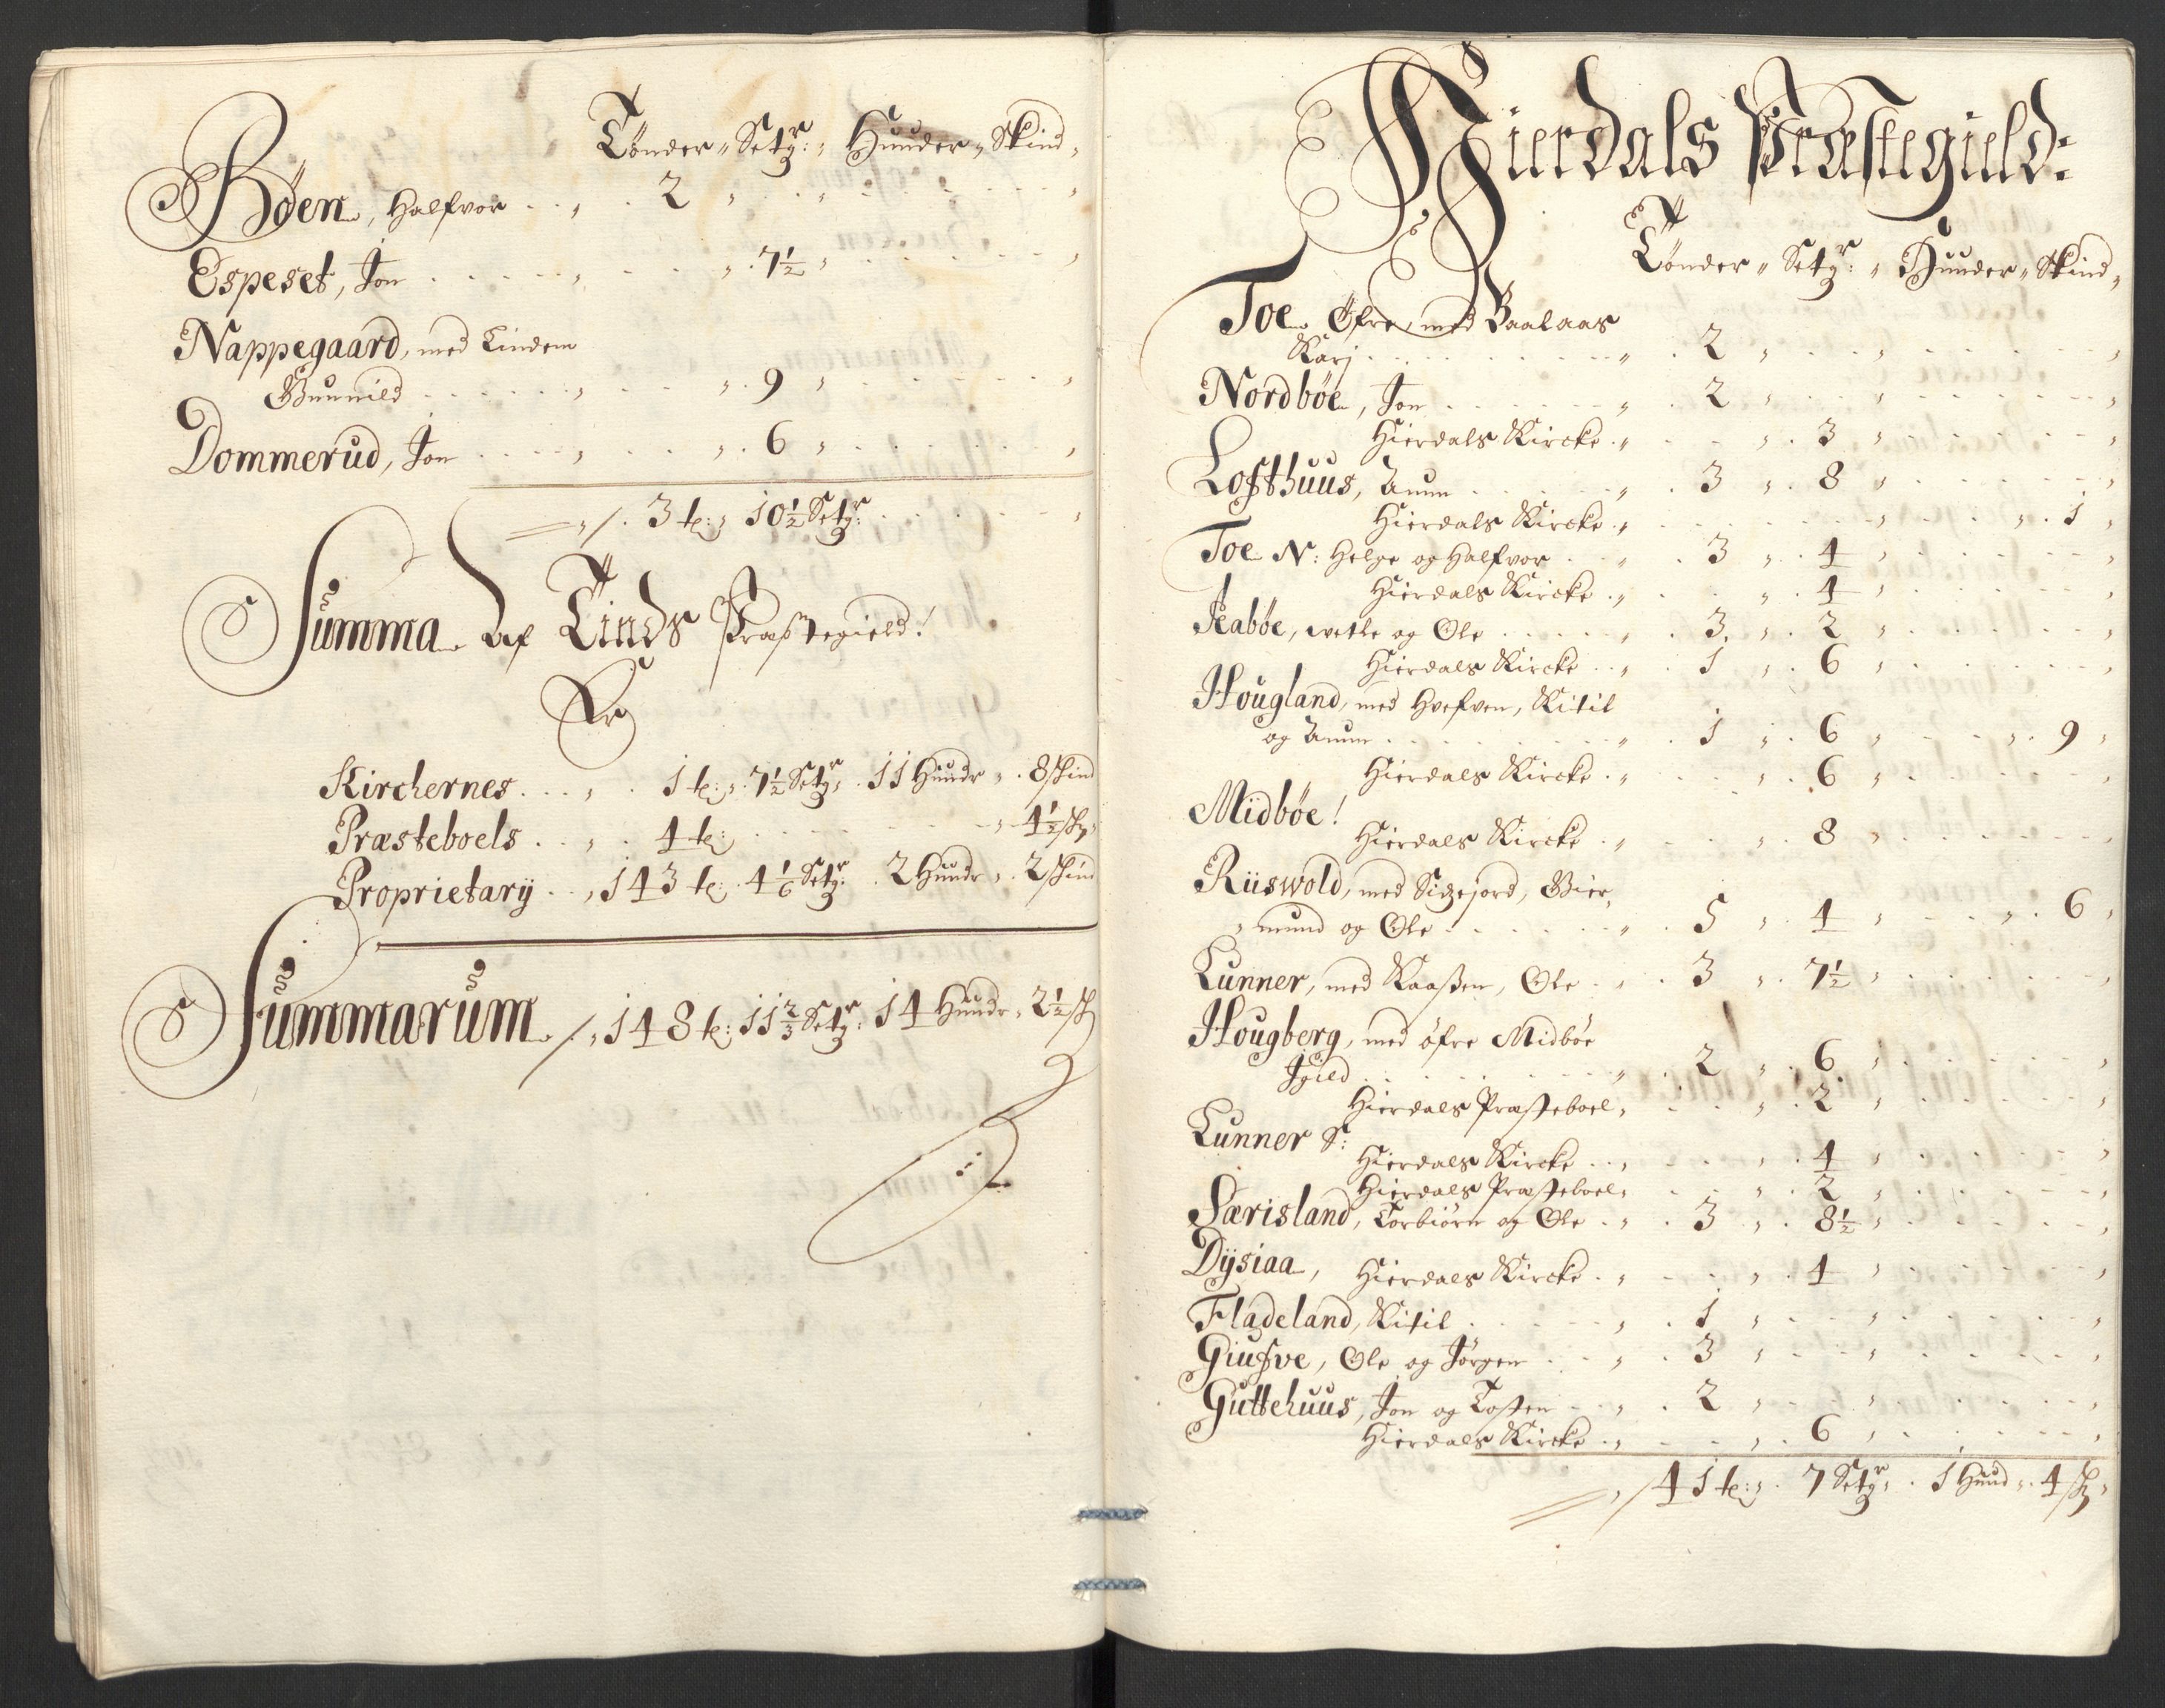 Tønder „ Setgr: „ Hunder „ Skind „
Bøen, Halfvor . . „ . 2 „ . . „ . . . „
Espeset, Jon . . . . „ . . . „ . 7½ „ . . . „
Nappegaard, med Lindem
Gunnild . . . . „ . . . „ . 9 „ . . . „
Dommerud, Jon . . . . „ . . . „ . 6 „ . . . „
„ /. 3 t: „ 10½ Setgr: . . . „
Summa Af Tinds Præstegield!
Er
Kirchernes . . „ . 1 t: „ 7½ Setgr: . 11 Hundr „ . 8 skind
Præsteboels . . „ . 4 t: . . . „ 4½ sk:
Proprietarÿ . . „ 143 t: . 4 1/6 Setgr: . 2 Hundr „ . 2 skind
Summarum /. „ 148 t: 11⅔ Setgr: 14 Hundr „ 2½ sk
Hierdals Præstegield:
Tønder „ Setgr: „ Hunder „ Skind „
Toe Øfre, med Baalaas
Karj . . . . „ . 2 „ . . „ . . . „
Nordbøe, Jon . . . . „ . 2 „ . . „ . . . „
Hierdals Kircke . „ . . „ . 3 „ . . . „
Lofthuus, Anun . . . . „ . 3 „ . 8 „ . . . „
Hierdals Kircke . „ . . . „ . . „ . 1 „
Toe N: Helge og Halfvor . . „ . 3 „ . 4 „ . . . „
Hierdals Kircke . „ . . „ . 4 „ . . . „
Aabøe, wetle og Ole . . . . „ . 3 „ . 2 „ . . . „
Hierdals Kircke . . „ . 1 „ . 6 „ . . . „
Hougland, med Hvefven, Kitil
og Anun . . . . „ . 1 „ . 6 „ . . „ . 9 „
Hierdals Kircke . „ . . „ . 6 „ . . . „
Midbøe!
Hierdals Kircke . „ . . „ . 8 „ . . . „
Riiswold, med Sizejord, Gier„
„mund og Ole . . . . „ . 5 „ . 4 „ . . „ . 6 „
Lunner, med Kaaßen, Ole . „ . 3 „ . 7½ „ . . . „
Hougberg, med øfre Midbøe
Igild . . . . „ . 2 „ . 6 „ . . . „
Hierdals Præsteboel „ . . „ . 2 „ . . . „
Lunner S:
Hierdals Kircke . . „ . . „ . 4 „ . . . „
Hierdals Præsteboel „ . . „ . 2 „ . . . „
Særisland, Torbiørn og Ole . „ . 3 „ . 8½ „ . . . „
Dÿsiaa, Hierdals Kircke . „ . . „ . 4 „ . . . „
Fladeland, Kitil . . . . „ . 1 „ . . „ . . . „
Giufve, Ole og Jørgen . . „ . 3 „ . . „ . . . „
Guttehuus, Jon og Tosten . . „ . 2 „ . . „ . . . „
Hierdals Kircke . „ . . „ . 6 „ . . . „
„ /41 t: „ . 7 Setgr: . 1 Hund „ . 4 sk „